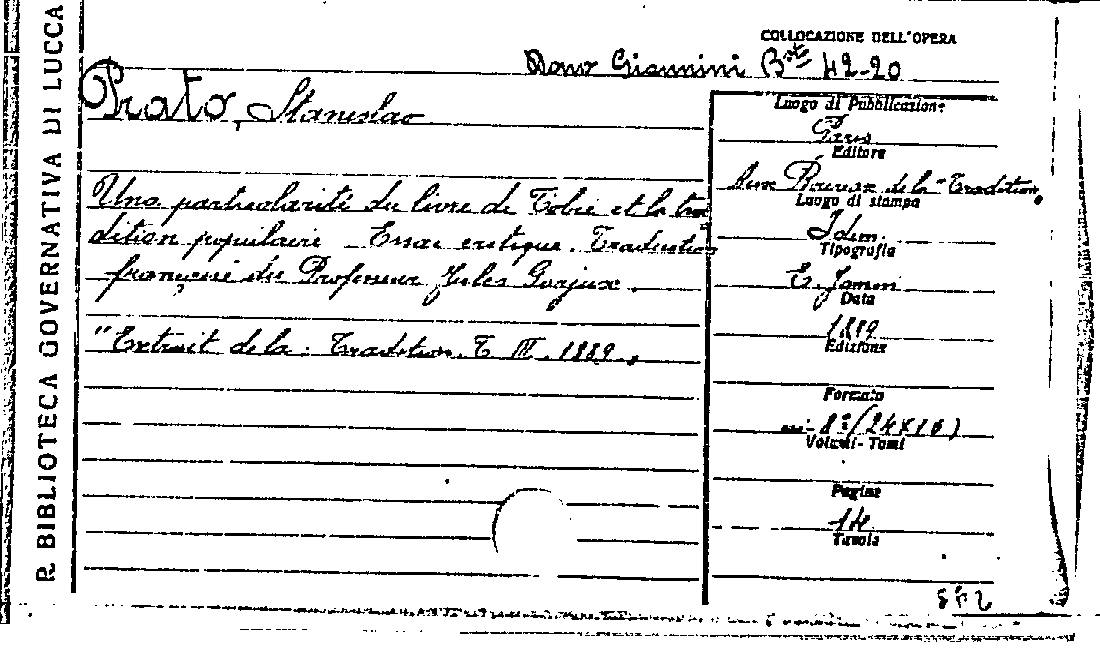 R. BIBLIOTECA GOVERNATIVA DI LUCCA
COLLOCAZIONE DELL'OPERA
Dono Giannini Bta 42-20
Prato, Stanislao
Una particolarité du livre de Tobie et la tra
dition populaire Essai critique. Traduction
française du Professeur Jules Gorjux.
"Extrait de la: Tradition. T III. 1889,
Luogo di Pubblicazione
Paris
Editore
Aux Bureaux de la Tradition,
Luogo di stampa
Idem.
Tipografia
E. Jamin
Data
1889
Edizione
Formato
8º (24x16)
Volumi - Tomi
Pagine
14
Tavole